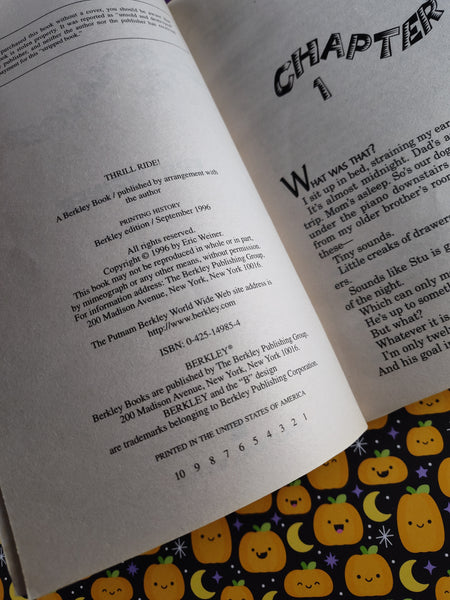 purchased this book without a cover, you should be aware that
book is stolen property. It was reported as "unsold and destroyed"
publisher, and neither the author nor the publisher has received
payment for this "stripped book."
THRILL RIDE!
A Berkley Book / published by arrangement with
the author
PRINTING HISTORY
Berkley edition / September 1996
All rights reserved.
Copyright © 1996 by Eric Weiner.
This book may not be reproduced in whole or in part,
by mimeograph or any other means, without permission.
For information address: The Berkley Publishing Group,
200 Madison Avenue, New York, New York 10016.
The Putnam Berkley World Wide Web site address is
http://www.berkley.com
ISBN: 0-425-14985-4
BERKLEY®
Berkley Books are published by The Berkley Publishing Group,
200 Madison Avenue, New York, New York 10016.
BERKLEY and the "B" design
are trademarks belonging to Berkley Publishing Corporation.
PRINTED IN THE UNITED STATES OF AMERICA
10 9 8 7 6 5 4 3 2 1
CHAPTER
1
WHAT WAS THAT?
I sit up in bed, straining my ear
It's almost midnight. Dad's a
trip. Mom's asleep. So's our dog
under the piano downstairs
from my older brother's roo
these—
Tiny sounds.
Little creaks of drawer
ers.
Sounds like Stu is g
of the night.
Which can only m
He's up to somet
But what?
Whatever it is
I'm only twel
And his goal i